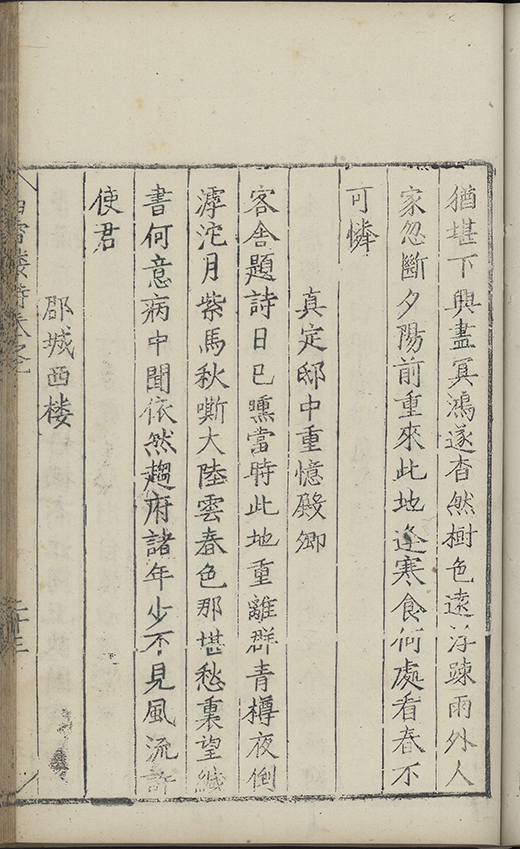 猶堪下興盡冥鴻遂杳然樹色遠浮踈雨外人
家忽斷夕陽前重來此地逢寒食何處看春不
可憐
真定邸中重憶殿卿
客舍題詩日已曛當時此地重離群青樽夜倒
滹沱月紫馬秋嘶大陸雲春色那堪愁裏望緘
書何意病中聞依然趙府諸年少不見風流許
使君
郡城西楼
楼詩卷之